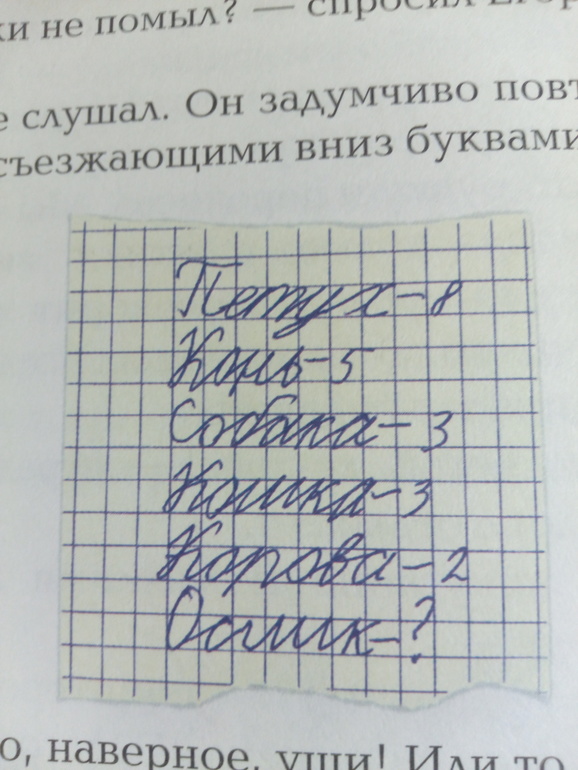 ки не помыл? — спросил Егор
е слушал. Он задумчиво повт
съезжающими вниз буквами
Петух-8
Конь-5
Собака-3
Кошка-3
Корова-2
Ослик-?
о, наверное, уши! Или то